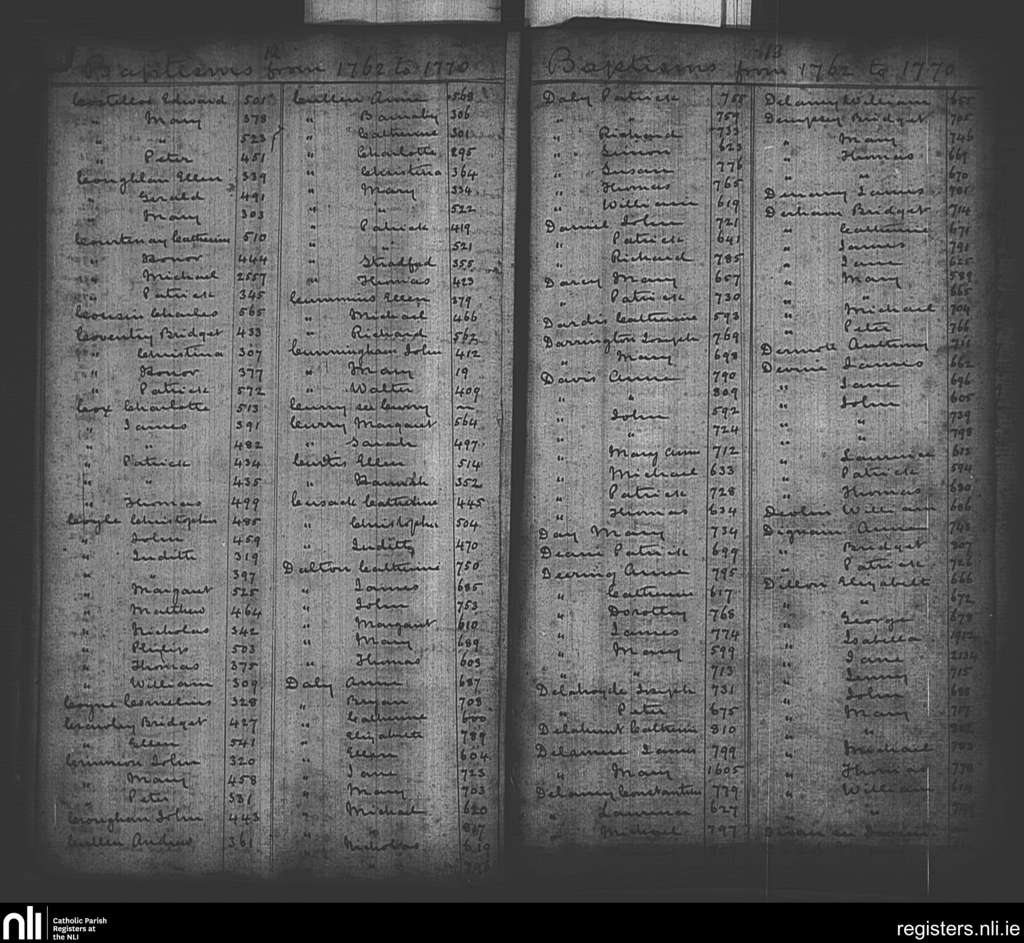 12
Baptisms from 1762 to 1770
Costelloe Edward 501
" Mary 378
" " 523
" Peter 451
Coughlan Ellen 339
" Gerald 491
" Mary 303
Courtenay Catherine 510
" Honor 444
" Michael 2557
" Patrick 345
Cousin Charles 565
Coventry Bridget 433
" Christina 307
" Honor 377
" Patrick 572
Cox Charlotte 513
" James 391
" " 482
" Patrick 434
" " 435
" Thomas 499
Coyle Christopher 485
" John 459
" Judith 319
" " 397
" Margaret 525
" Matthew 464
" Nicholas 342
" Philip 503
" Thomas 375
" William 309
Coyne Cornelius 328
Crawley Bridget 427
" Ellen 541
Crinnion John 320
" Mary 458
" Peter 531
Croughan John 443
Cullen Andrew 361
Cullen Anne 568
" Barnaby 306
" Catherine 301
" Charlotte 295
" Christina 364
" Mary 334
" " 522
" Patrick 419
" " 521
" Stratford 355
" Thomas 423
Cummins Ellen 379
" Michael 466
" Richard 562
Cunningham John 412
" Mary 19
" Walter 409
Curry see Corry
Curry Margaret 564
" Sarah 497
Curtis Ellen 514
" Hannah 352
Cusack Catherine 445
" Christopher 504
" Judith 470
Dalton Catherine 750
" James 685
" John 753
" Margaret 610
" Mary 689
" Thomas 603
Daly Anne 687
" Bryan 708
" Catherine 600
" Elizabeth 789
" Ellen 604
" Jane 723
" Mary 703
" Michael 620
" "
" Nicholas
13
Baptisms from 1762 to 1770
Daly Patrick 755
" " 759
" Richard 733
" Simon 623
" Susan 776
" Thomas 765
" William 619
Daniel John 721
" Patrick 641
" Richard 785
Darcy Mary 657
" Patrick 730
Dardis Catherine 593
Darrington Joseph 769
" Mary 698
Davis Anne 790
" " 809
" John 592
" " 724
" Mary Anne 712
" Michael 633
" Patrick 728
" Thomas 634
Day Mary 734
Deane Patrick 699
Deering Anne 795
" Catherine 617
" Dorothy 768
" James 774
" Mary 599
" " 713
Delahoyde Joseph 731
" Peter 675
Delahunt Catherine 810
Delamere James 799
" Mary 1605
Delaney Constantine 779
" Laurence 627
" Michael 797
Delaney William 655
Dempsey Bridget 705
" Mary 746
" Thomas 669
" " 670
Denany James 701
Derham Bridget 714
" Catherine 671
" James 791
" Jane 625
" Mary 589
" " 665
" Michael 704
" Peter 766
Dermott Anthony 711
Devine James 662
" Jane 696
" John 605
" " 739
" " 798
" Laurence 613
" Patrick 594
" Thomas 630
Devlin William 606
Dignam Anne 743
" Bridget 807
" Patrick 726
Dillon Elizabeth 666
" " 672
" George 678
" Isabella
" Jane 2134
" Jenny 715
" John 688
" Mary 717
" "
" Michael
" Thomas 778
" William
" "
nli
Catholic Parish
Registers at
the NLI
registers.nli.ie